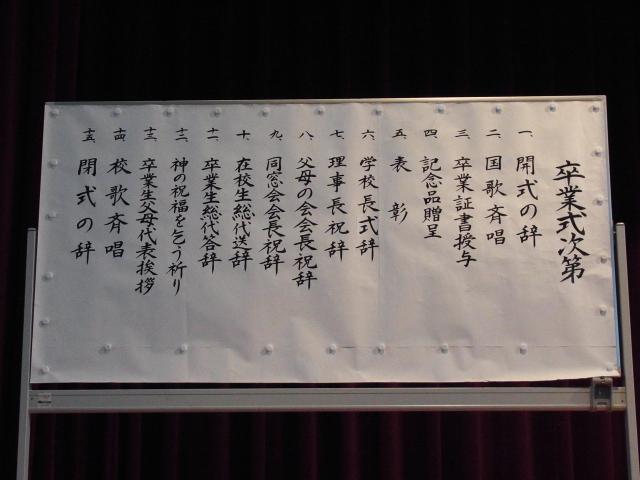 卒業式次第
一、開式の辞
二、国歌斉唱
三、卒業証書授与
四、記念品贈呈
五、表彰
六、学校長式辞
七、理事長祝辞
八、父母の会会長祝辞
九、同窓会会長祝辞
十、在校生総代送辞
十一、卒業生総代答辞
十二、神の祝福を乞う祈り
十三、卒業生父母代表挨拶
十四、校歌斉唱
十五、閉式の辞